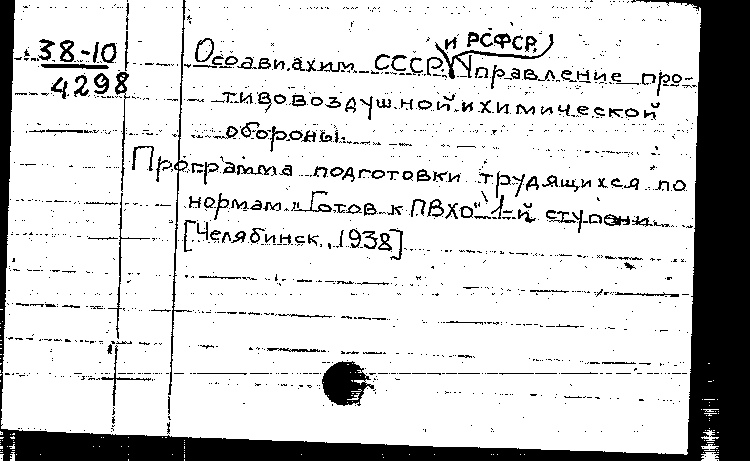 и РСФСР.
38-10 Осоавиахим СССР. Управление про-
4298 тивовоздушной и химической
обороны.
Программа подготовки трудящихся по
нормам „Готов к ПВХО" 1-й ступени.
[Челябинск, 1938]